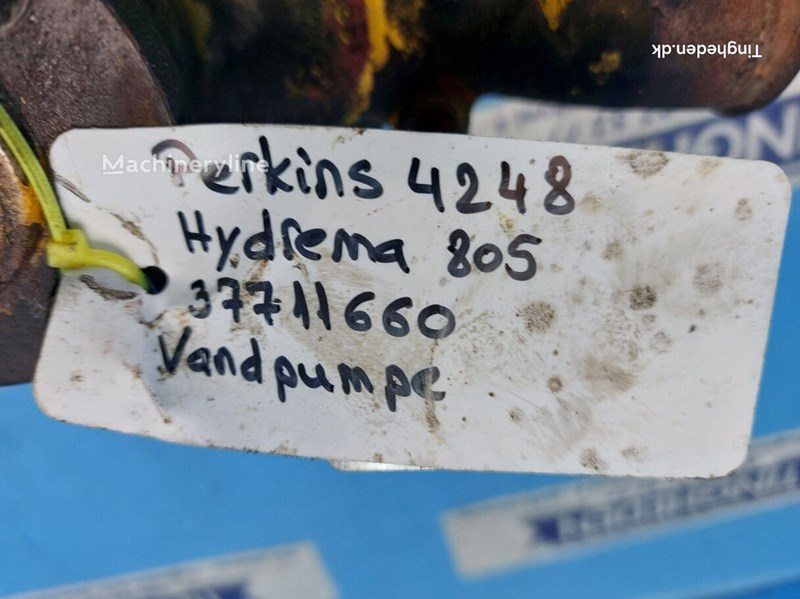 Tingheden.dk
Machineryline
Perkins 4248
Hydrema 805
37711660
Vandpumpe